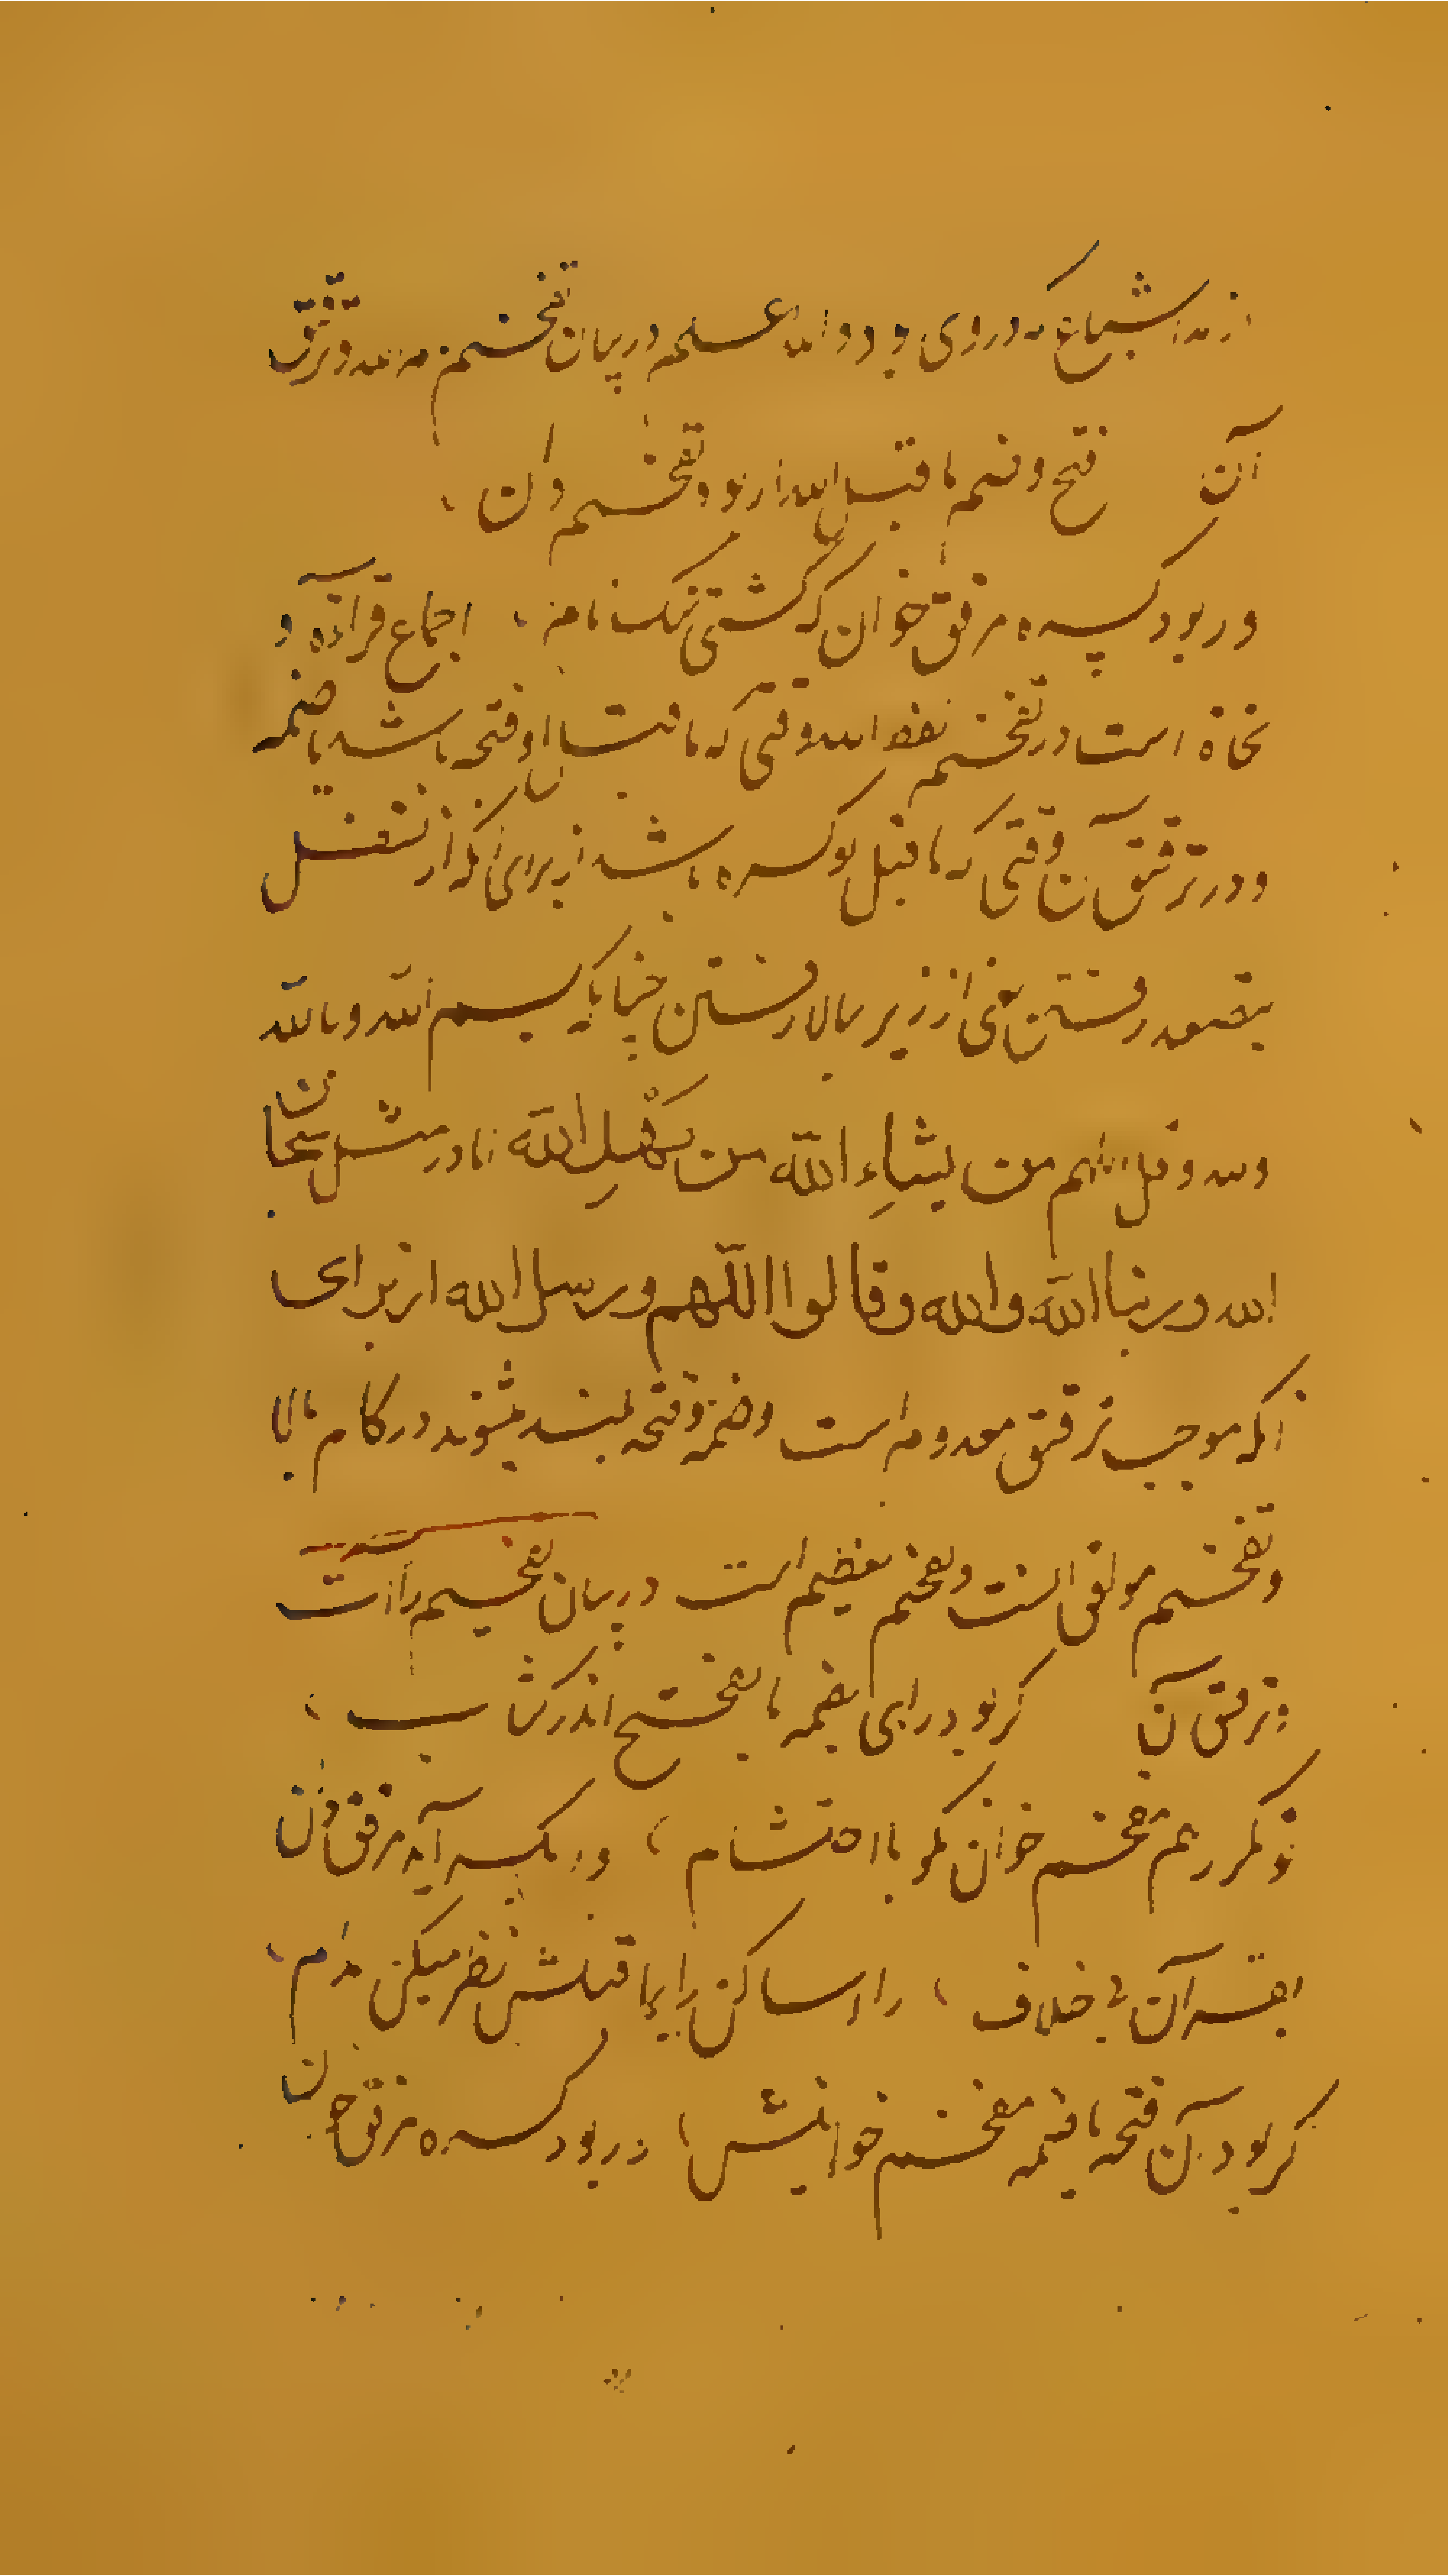 اشباع که در وی بود والله اعلم در بیان تفخیم الله و ترقیق
آن فتح و ضم ما قبل الله ار بود تفخیم دان
ور بود کسره مرقق خوان که گشتی نیک نام اجماع قراءه و
نحاة است در تفخیم لفظ الله وقتی که ما قبل او فتحه باشد یا ضمه
و در ترقیق آن وقتی که ما قبل او کسره باشد از برای آنکه از تسفل
بتصعد رفتن یعنی از زیر ببالا رفتن بسم الله و بالله
ولله و قل اللهم من یشاء الله من یکْهِلِ الله اما در مثل سبحان
الله و ربنا الله والله و قالوا اللهم و رسل الله از برای
آنکه موجب ترقیق معدوم است و ضمه و فتحه بلند میشوند در کام بالا
و تفخیم موافق است و تفخیم تعظیم است در بیان تفخیم راآت
و ترقیق آن گر بود رایی بضمه یا بفتح اندر کتاب
تو مکرر هم مفخم خوان مگو با احتشام ور بکسر آید مرقق دان
بقرآن بی خلاف راء ساکن را بما قبلش نظر میکن مدام
گر بود آن فتحه یا ضمه مفخم خوانیش ور بود کسره مرقق خوان